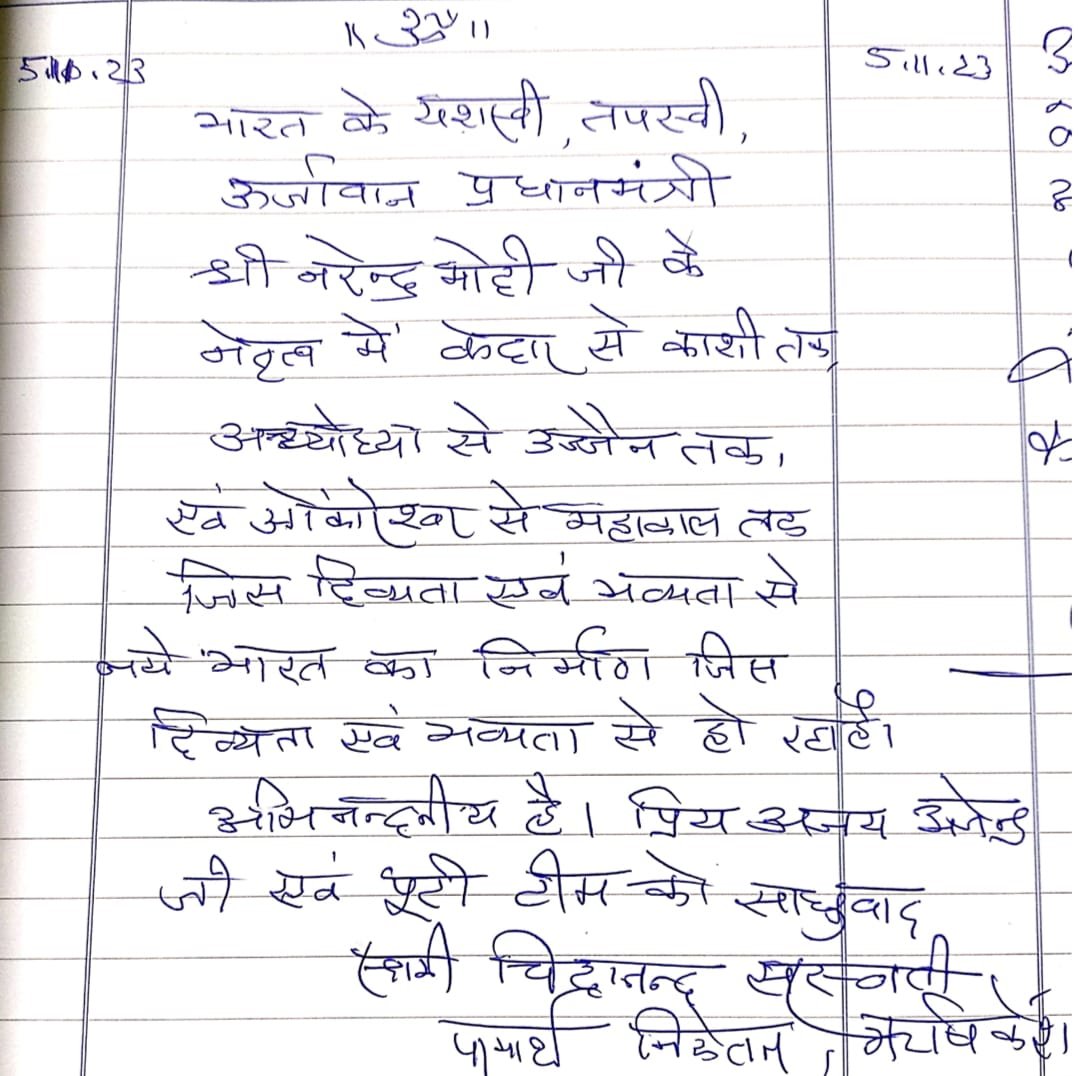 ॥ ॐ ॥
5.10.23
5.11.23
भारत के यशस्वी, तपस्वी,
ऊर्जावान प्रधानमंत्री
श्री नरेन्द्र मोदी जी के
नेतृत्व में केदार से काशी तक,
अयोध्या से उज्जैन तक,
एवं ओंकारेश्वर से महाकाल तक
जिस दिव्यता एवं भव्यता से
नये भारत का निर्माण जिस
दिव्यता एवं भव्यता से हो रहा है।
अभिनन्दनीय है। प्रिय अजय अजेन्द्र
जी एवं पूरी टीम को साधुवाद
स्वामी चिदानन्द सरस्वती
परमार्थ निकेतन,